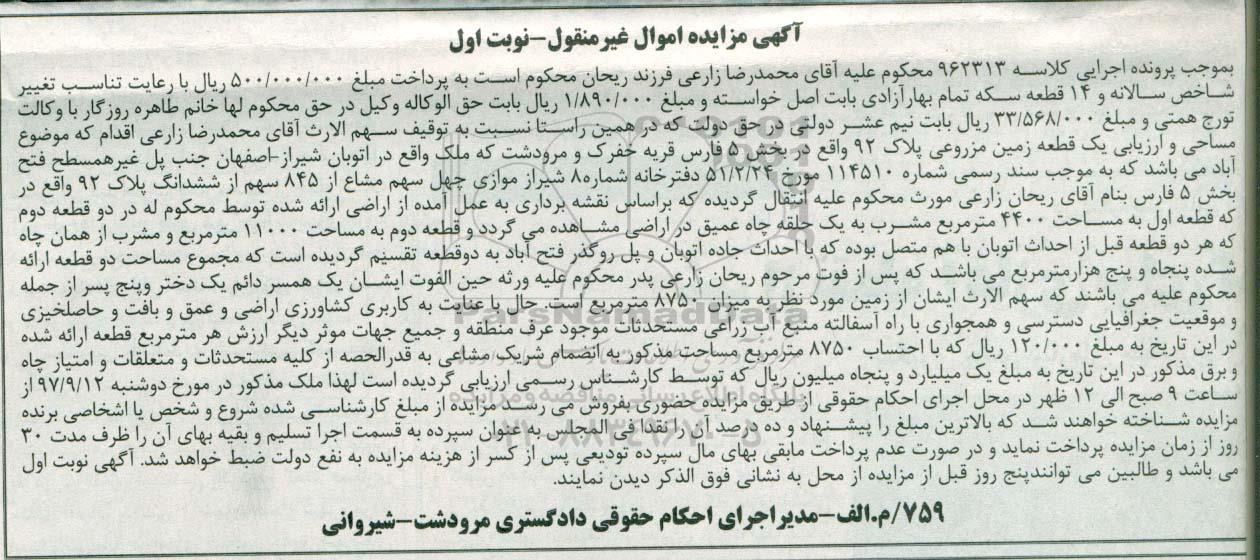 آگهی مزایده اموال غیرمنقول-نوبت اول
بموجب پرونده اجرایی کلاسه ۹۶۲۳۱۳ محکوم علیه آقای محمدرضا زارعی فرزند ریحان محکوم است به پرداخت مبلغ ۵۰۰/۰۰۰/۰۰۰ ریال با رعایت تناسب تغییر
شاخص سالانه و ۱۴ قطعه سکه تمام بهارآزادی بابت اصل خواسته و مبلغ ۱/۸۹۰/۰۰۰ ریال بابت حق الوکاله وکیل در حق محکوم لها خانم طاهره روزگار با وکالت
تورج همتی و مبلغ ۳۳/۵۶۸/۰۰۰ ریال بابت نیم عشر دولتی در حق دولت که در همین راستا نسبت به توقیف سهم الارث آقای محمدرضا زارعی اقدام که موضوع
مساحی و ارزیابی یک قطعه زمین مزروعی پلاک ۹۲ واقع در بخش ۵ فارس قریه خفرک و مرودشت که ملک واقع در اتوبان شیراز-اصفهان جنب پل غیرهمسطح فتح
آباد می باشد که به موجب سند رسمی شماره ۱۱۴۵۱۰ مورخ ۵۱/۲/۲۴ دفترخانه شماره۸ شیراز موازی چهل سهم مشاع از ۸۴۵ سهم از ششدانگ پلاک ۹۲ واقع در
بخش ۵ فارس بنام آقای ریحان زارعی مورث محکوم علیه انتقال گردیده که براساس نقشه برداری به عمل آمده از اراضی ارائه شده توسط محکوم له در دو قطعه دوم
که قطعه اول به مساحت ۴۴۰۰ مترمربع مشرب به یک حلقه چاه عمیق در اراضی مشاهده می گردد و قطعه دوم به مساحت ۱۱۰۰۰ مترمربع و مشرب از همان چاه
که هر دو قطعه قبل از احداث اتوبان با هم متصل بوده که با احداث جاده اتوبان و پل روگذر فتح آباد به دوقطعه تقسیم گردیده است که مجموع مساحت دو قطعه ارائه
شده پنجاه و پنج هزارمترمربع می باشد که پس از فوت مرحوم ریحان زارعی پدر محکوم علیه ورثه حین الفوت ایشان یک همسر دائم یک دختر وپنج پسر از جمله
محکوم علیه می باشند که سهم الارث ایشان از زمین مورد نظر به میزان ۸۷۵۰ مترمربع است. حال با عنایت به کاربری کشاورزی اراضی و عمق و بافت و حاصلخیزی
و موقعیت جغرافیایی دسترسی و همجواری با راه آسفالته منبع آب زراعی مستحدثات موجود عرف منطقه و جمیع جهات موثر دیگر ارزش هر مترمربع قطعه ارائه شده
در این تاریخ به مبلغ ۱۲۰/۰۰۰ ریال که با احتساب ۸۷۵۰ مترمربع مساحت مذکور به انضمام شریک مشاعی به قدرالحصه از کلیه مستحدثات و متعلقات و امتیاز چاه
و برق مذکور در این تاریخ به مبلغ یک میلیارد و پنجاه میلیون ریال که توسط کارشناس رسمی ارزیابی گردیده است لهذا ملک مذکور در مورخ دوشنبه ۹۷/۹/۱۲ از
ساعت ۹ صبح الی ۱۲ ظهر در محل اجرای احکام حقوقی از طریق مزایده حضوری بفروش می رسد مزایده از مبلغ کارشناسی شده شروع و شخص یا اشخاصی برنده
مزایده شناخته خواهند شد که بالاترین مبلغ را پیشنهاد و ده درصد آن را نقدا فی المجلس به عنوان سپرده به قسمت اجرا تسلیم و بقیه بهای آن را ظرف مدت ۳۰
روز از زمان مزایده پرداخت نماید و در صورت عدم پرداخت مابقی بهای مال سپرده تودیعی پس از کسر از هزینه مزایده به نفع دولت ضبط خواهد شد. آگهی نوبت اول
می باشد و طالبین می توانندپنج روز قبل از مزایده از محل به نشانی فوق الذکر دیدن نمایند.
۷۵۹/م.الف-مدیراجرای احکام حقوقی دادگستری مرودشت-شیروانی